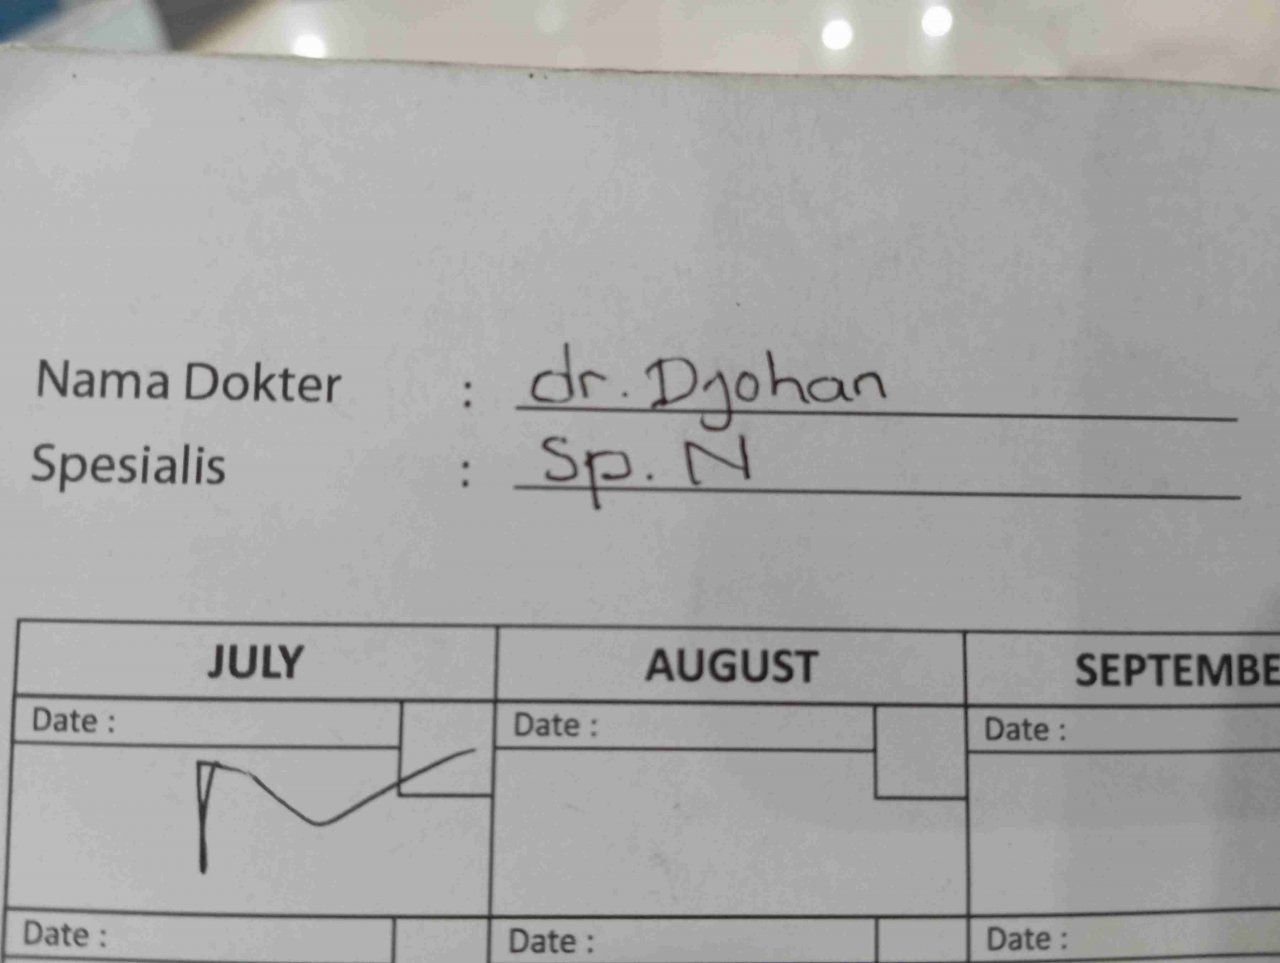 Nama Dokter : dr. Djohan
Spesialis : Sp. N
JULY AUGUST SEPTEMBE
Date : Date : Date :
Date : Date : Date :